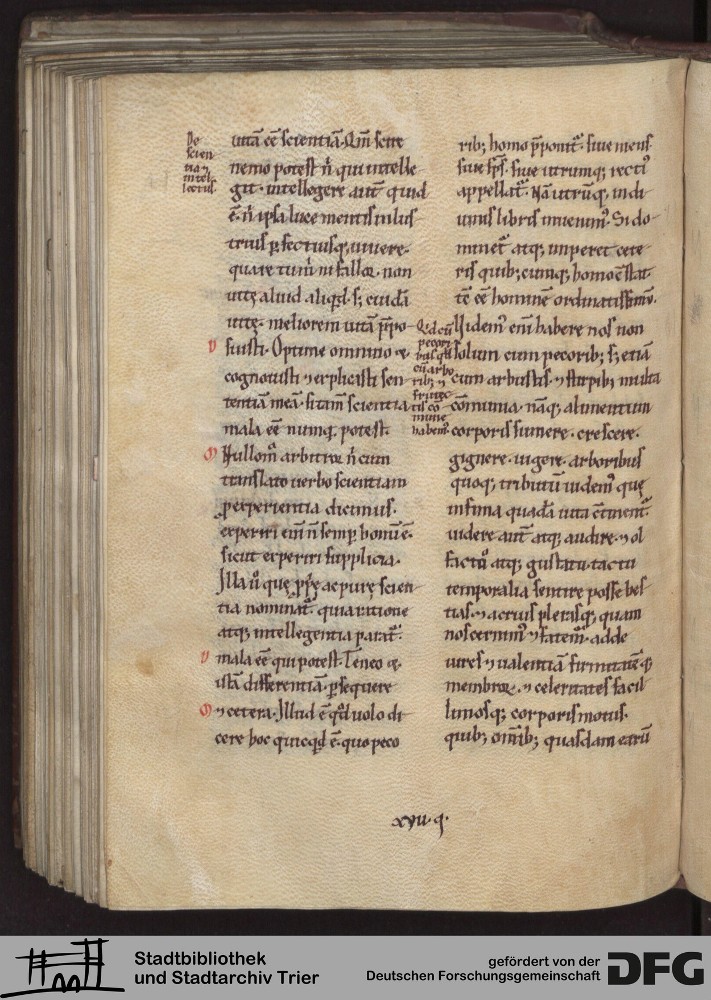 De
scien
tia ⁊
intel
lectus.
uitā eē scientiā. Qm̄ scire
nemo potest n̄ qui intelle
git. intellegere aut̄ quid
ē. n̄ ipsa luce mentis inlus
trius ꝑfectiusq; uiuere.
quare tum̄ ni fallor. non
uitę aliud aliqd. s; cuidā
uitę. meliorem uitā p̄po
suisti. Optime omnino
cognouisti ⁊ explicasti sen
tentiā meā. si tam̄ scientia
mala eē numq̄ potest.
Nullom̄ arbitror n̄ cum
translato uerbo scientiam
ꝓ experientia dicimus.
experiri eni n̄ semp̄ bonū ē.
sicut experiri supplicia.
Illa ů quę ꝓprię ac purę scien
tia nominat̄. quia ratione
atq; intellegentia parat̄.
mala eē qui potest. Teneo
istā differentiā. ꝑsequere
⁊ cetera. Illud ē qd uolo di
cere hoc quicqd ē. quo peco
rib; homo p̄ponit̄. siue mens
siue sp̄s. siue utrumq; recti
appellat̄. Nā utrūq; in di
uinis libris inuenim⁹. Si do
minet̄ atq; imperet cete
ris quib;cumq; homo cstat.
tc̄ eē hominē ordinatissimū.
Qd cū
pecori
bus ⁊
cū arbo
rib; ⁊
frutec
tis co
mune
habem⁹
Uidem⁹ enī habere nos non
solum cum pecorib; s; etiā
cum arbustis ⁊ stirpib; multa
cōmunia. nāq; alimentum
corporis sumere. crescere.
gignere. uigere. arboribus
quoq; tributū uidem⁹ quę
infima quadā uita c̄tinent̄.
uidere aut̄ atq; audire. ⁊ ol
factu atq; gustatu. tactu
temporalia sentire posse bes
tias. ⁊ acrius plerisq; quam
nos cernim⁹ ⁊ fatem̄. adde
uires ⁊ ualentiā firmitatēq;
membror. ⁊ celeritates facil
limosq; corporis motus.
quib; omīb; quasdam earū
xvii. q.
Stadtbibliothek
und Stadtarchiv Trier
gefördert von der
Deutschen Forschungsgemeinschaft
DFG